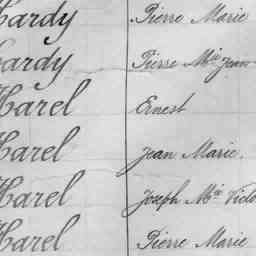 Hardy Pierre Marie
Hardy Pierre Mie Jean
Harel Ernest
Harel Jean Marie.
Harel Joseph Mie Victo
Harel Pierre Marie